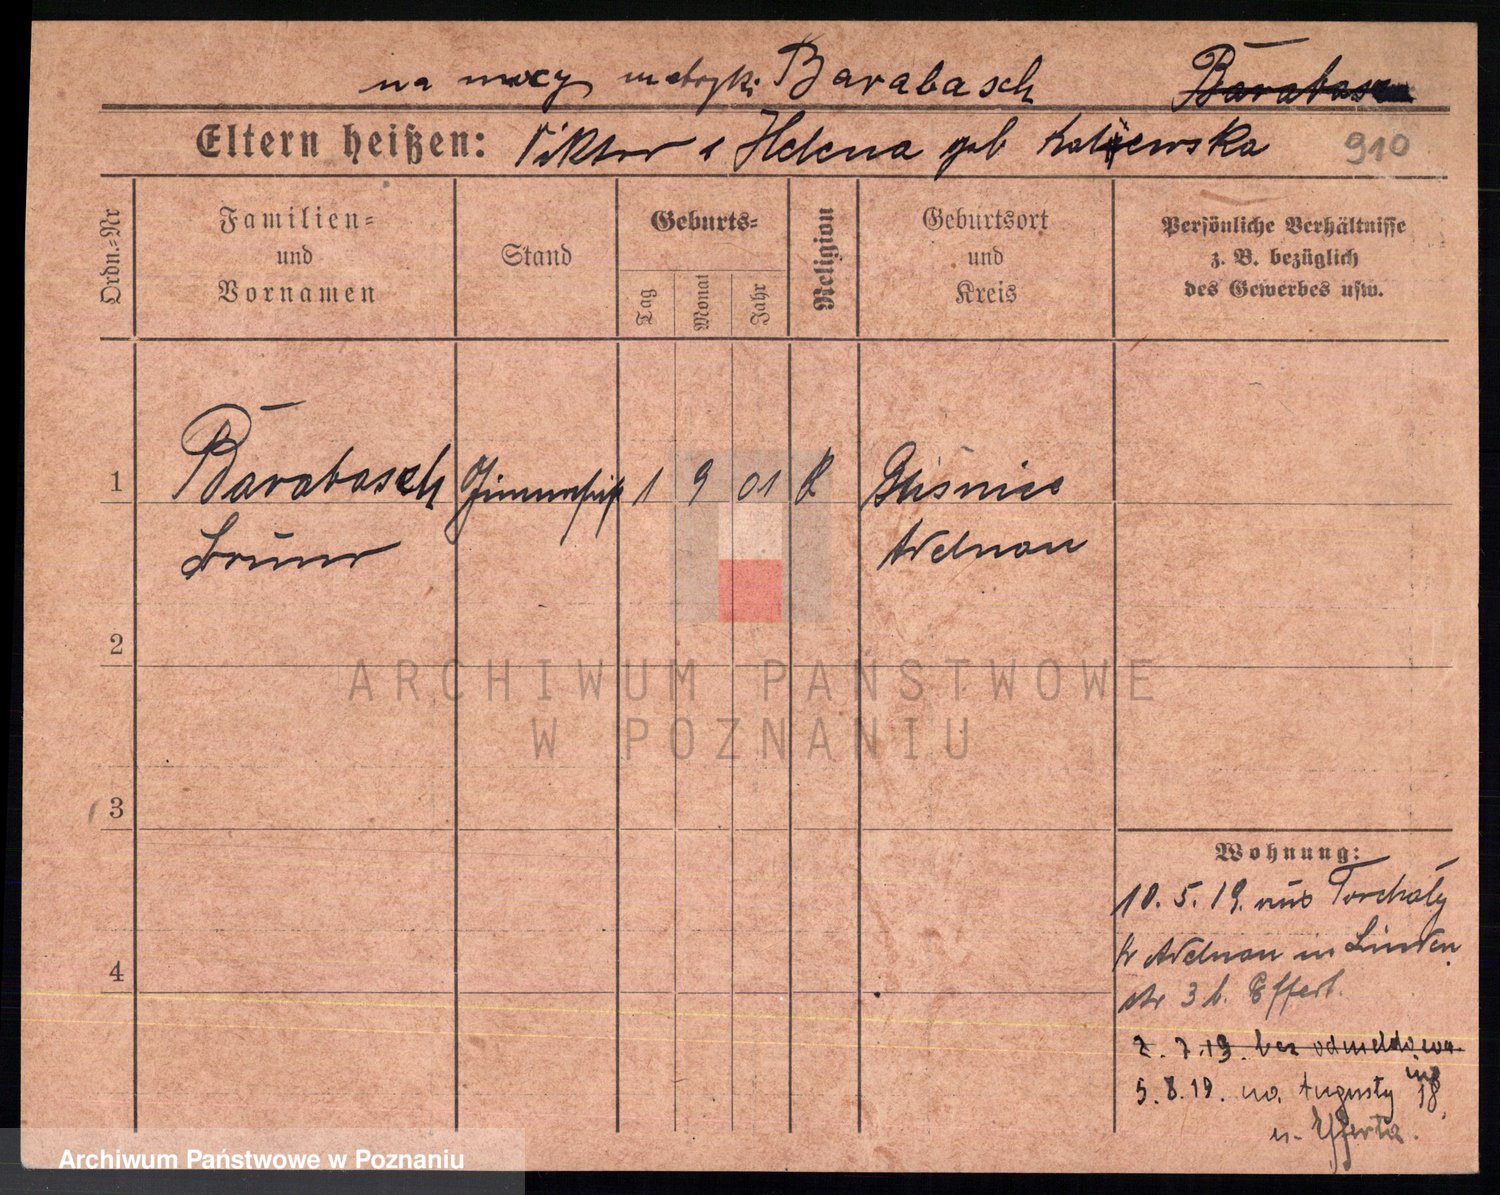 na mocy metryki Barabasch Barabasz
Eltern heißen: Viktor u Helena geb
910
Ordn.-Nr
Familien-
und
Vornamen
Stand
Geburts-
Tag
Monat
Jahr
Religion
Geburtsort
und
Kreis
Persönliche Verhältnisse
z. B. bezüglich
des Gewerbes usw.
1
Barabasch
Bruno
1 9 01 K
Adelnau
2
3
4
Wohnung:
10.5.19. aus
Kr Adelnau in Linden
str 3 b. Effert.
2.7.19. bez odmeldowa
5.8.19. na Augusty 18
u. Efferta.
ARCHIWUM PAŃSTWOWE
W POZNANIU
Archiwum Państwowe w Poznaniu